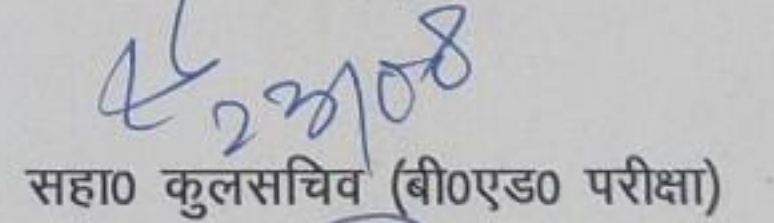 23/08
सहा0 कुलसचिव (बी0एड0 परीक्षा)